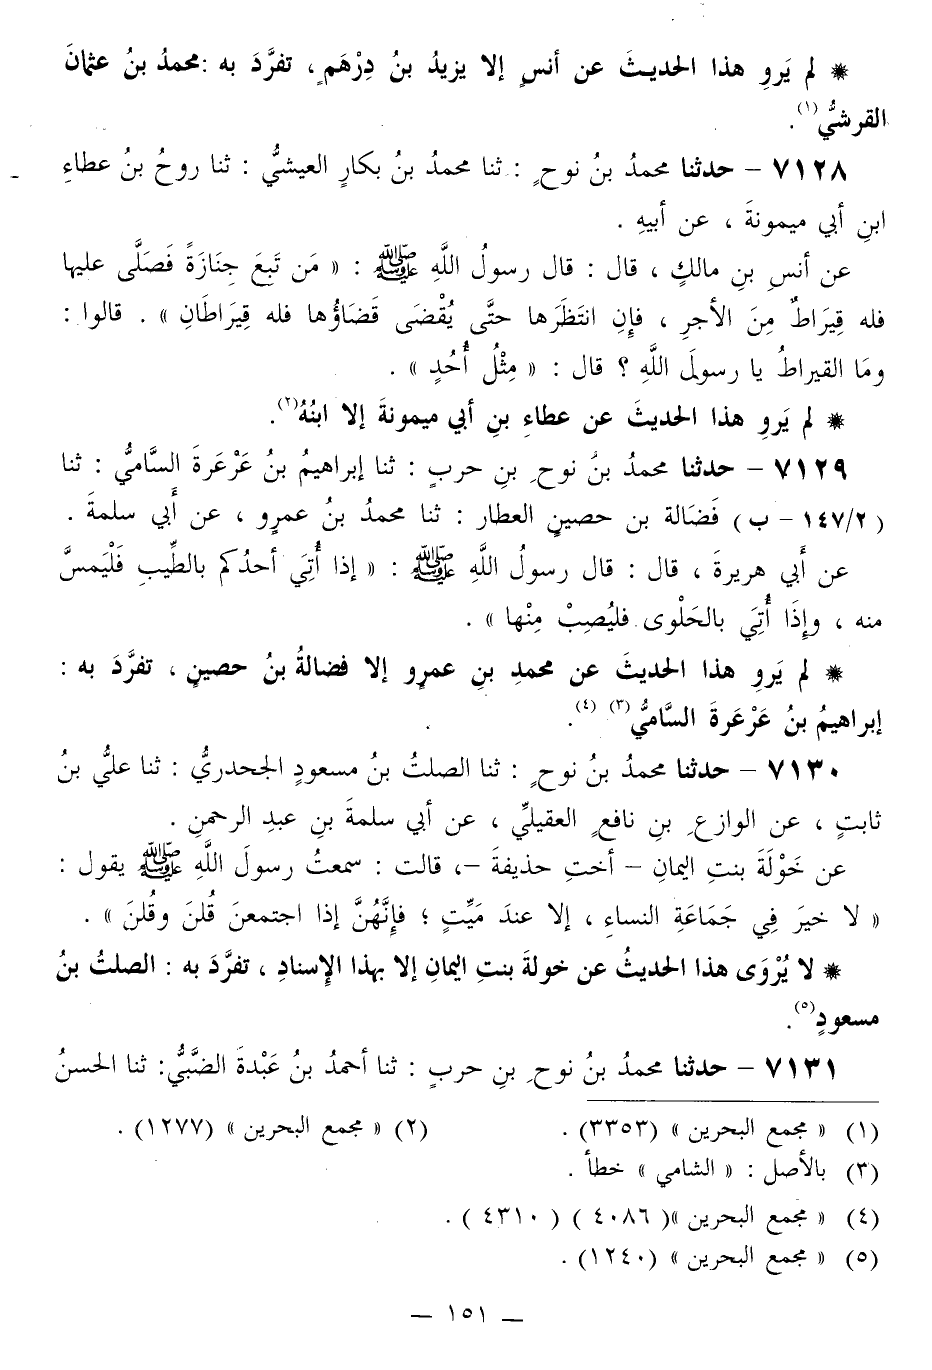 * لم يَروِ هذا الحديثَ عن أنسٍ إلا يزيدُ بنُ دِرْهَمٍ ، تفرَّدَ به : محمدُ بنُ عثمانَ
القرشيُّ(١).
٧١٢٨ – حدثنا محمدُ بنُ نوحٍ : ثنا محمدُ بنُ بكارٍ العيشيُّ : ثنا روحُ بنُ عطاءِ
ابنِ أبي ميمونةَ ، عن أبيهِ .
عن أنسِ بنِ مالكٍ ، قال : قال رسولُ اللَّهِ ﷺ : « مَن تَبِعَ جِنَازَةً فَصَلَّى عليها
فله قِيرَاطٌ مِنَ الأجرِ ، فإِنِ انتَظَرَها حتَّى يُقْضَى قَضَاؤُها فله قِيرَاطَانِ » . قالوا :
ومَا القيراطُ يا رسولَ اللَّهِ ؟ قال : « مِثْلُ أُحُدٍ » .
* لم يَروِ هذا الحديثَ عن عطاءِ بنِ أبي ميمونةَ إلا ابنُهُ(٢).
٧١٢٩ – حدثنا محمدُ بنُ نوحِ بنِ حربٍ : ثنا إبراهيمُ بنُ عَرْعَرةَ السَّاميُّ : ثنا
( ١٤٧/٢ – ب ) فَضَالة بن حصينٍ العطار : ثنا محمدُ بنُ عمرٍو ، عن أَبي سلمةَ .
عن أَبي هريرةَ ، قال : قال رسولُ اللَّهِ ﷺ : « إذا أُتِيَ أحدُكم بالطِّيبِ فَلْيَمسَّ
منه ، وإِذَا أُتِيَ بالحَلْوى فليُصِبْ مِنْها » .
* لم يَروِ هذا الحديثَ عن محمدِ بنِ عمرٍو إلا فضالةُ بنُ حصينٍ ، تفرَّدَ به :
إبراهيمُ بنُ عَرْعَرةَ السَّاميُّ(٣) (٤).
٧١٣٠ – حدثنا محمدُ بنُ نوحٍ : ثنا الصلتُ بنُ مسعودٍ الجحدريُّ : ثنا عليُّ بنُ
ثابتٍ ، عن الوازعِ بنِ نافعٍ العقيليِّ ، عن أبي سلمةَ بنِ عبدِ الرحمنِ .
عن خَوْلَةَ بنتِ اليمانِ – أختِ حذيفةَ –، قالت : سمعتُ رسولَ اللَّهِ ﷺ يقول :
« لا خيرَ فِي جَمَاعَةِ النساءِ ، إلا عندَ مَيِّتٍ ؛ فإِنَّهُنَّ إذا اجتمعنَ قُلنَ وقُلنَ » .
* لا يُرْوَى هذا الحديثُ عن خولةَ بنتِ اليمانِ إلا بهذا الإِسنادِ ، تفرَّدَ به : الصلتُ بنُ
مسعودٍ(٥).
٧١٣١ – حدثنا محمدُ بنُ نوحِ بنِ حربٍ : ثنا أحمدُ بنُ عَبْدةَ الضَّبِّيُّ: ثنا الحسنُ
(١) « مجمع البحرين » (٣٣٥٣) . (٢) « مجمع البحرين » (١٢٧٧) .
(٣) بالأصل : « الشامي » خطأ .
(٤) « مجمع البحرين »( ٤٠٨٦ ) ( ٤٣١٠ ) .
(٥) « مجمع البحرين » (١٢٤٠) .
– ١٥١ –